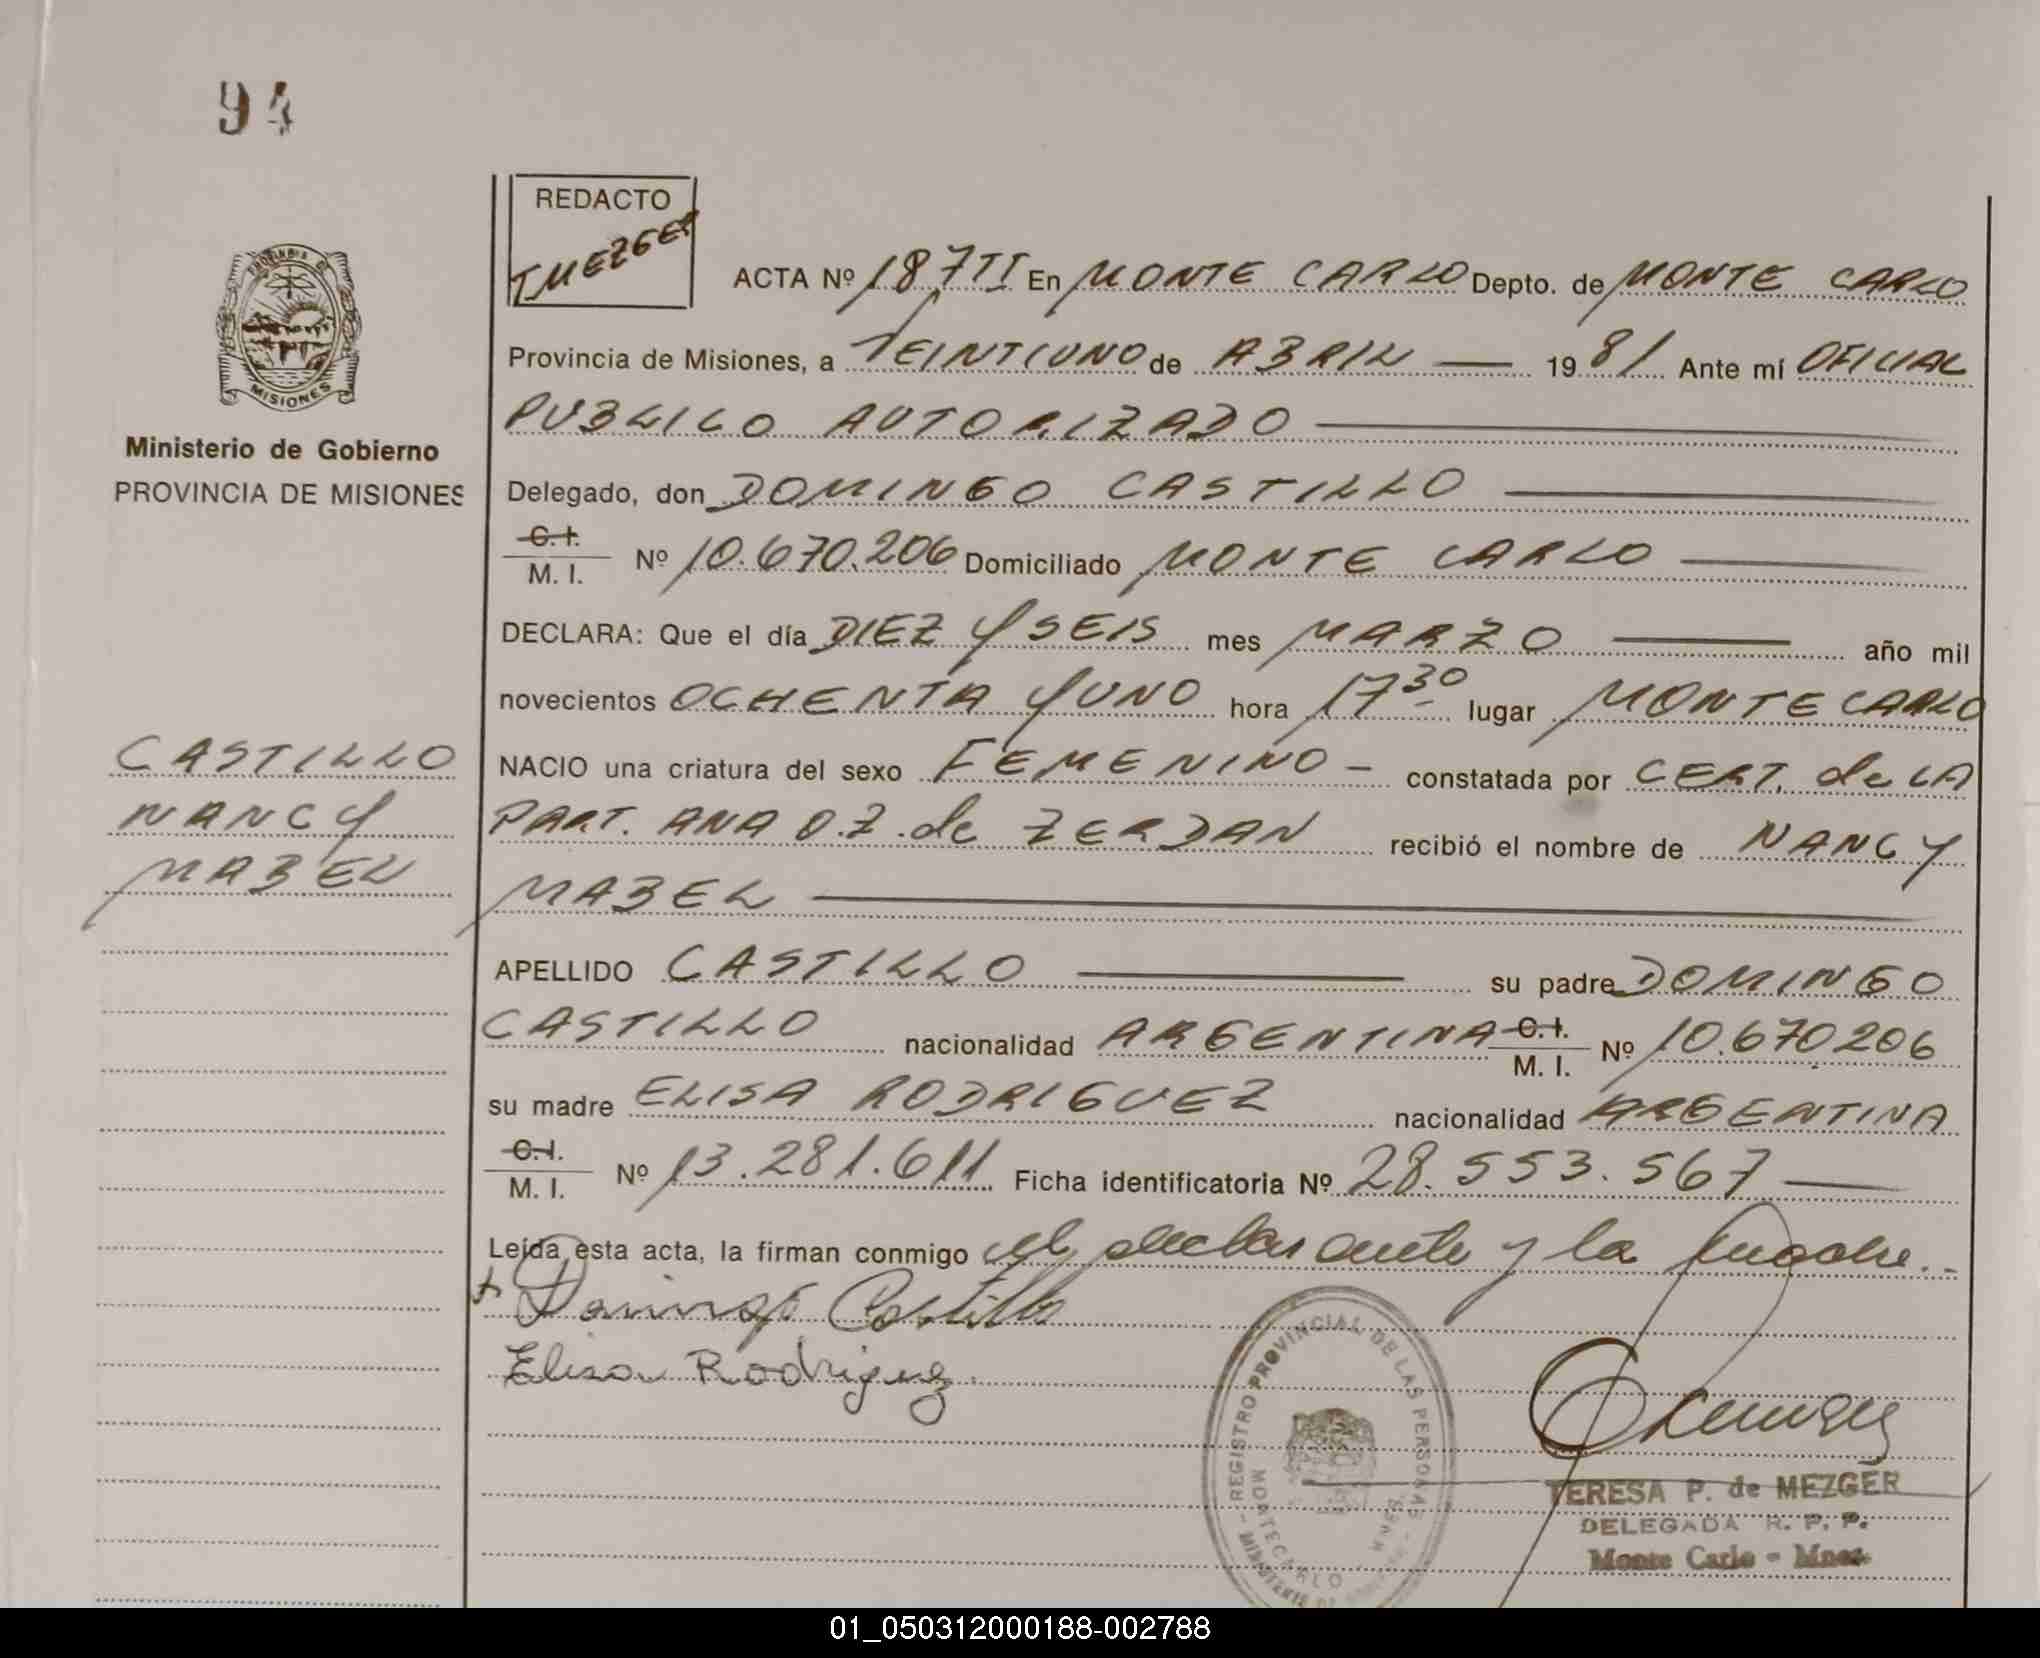 94
REDACTO
T MEZGER
ACTA Nº 187 TI En MONTE CARLO Depto. de MONTE CARLO
Provincia de Misiones, a VEINTIUNO de ABRIL — 19 81 Ante mí OFICIAL
PUBLICO AUTORIZADO
Delegado, don DOMINGO CASTILLO
C. I.
M. I. Nº 10.670.206 Domiciliado MONTE CARLO
DECLARA: Que el día DIEZ Y SEIS mes MARZO año mil
novecientos OCHENTA Y UNO hora 17 30 lugar MONTE CARLO
NACIO una criatura del sexo FEMENINO — constatada por CERT. de LA
PART. ANA O.Z. de ZERDAN recibió el nombre de NANCY
MABEL
APELLIDO CASTILLO su padre DOMINGO
CASTILLO nacionalidad ARGENTINA C. I.
M. I. Nº 10.670206
su madre ELISA RODRIGUEZ nacionalidad ARGENTINA
C. I.
M. I. Nº 13.281.611 Ficha identificatoria Nº 28.553.567
Leída esta acta, la firman conmigo el declarante y la madre.
Domingo Castillo
Elisa Rodriguez
PROVINCIA DE
MISIONES
Ministerio de Gobierno
PROVINCIA DE MISIONES
CASTILLO
NANCY
MABEL
REGISTRO PROVINCIAL DE LAS PERSONAS
MONTECARLO
TERESA P. de MEZGER
DELEGADA R. P. P.
Monte Carlo - Mnes.
01_050312000188-002788